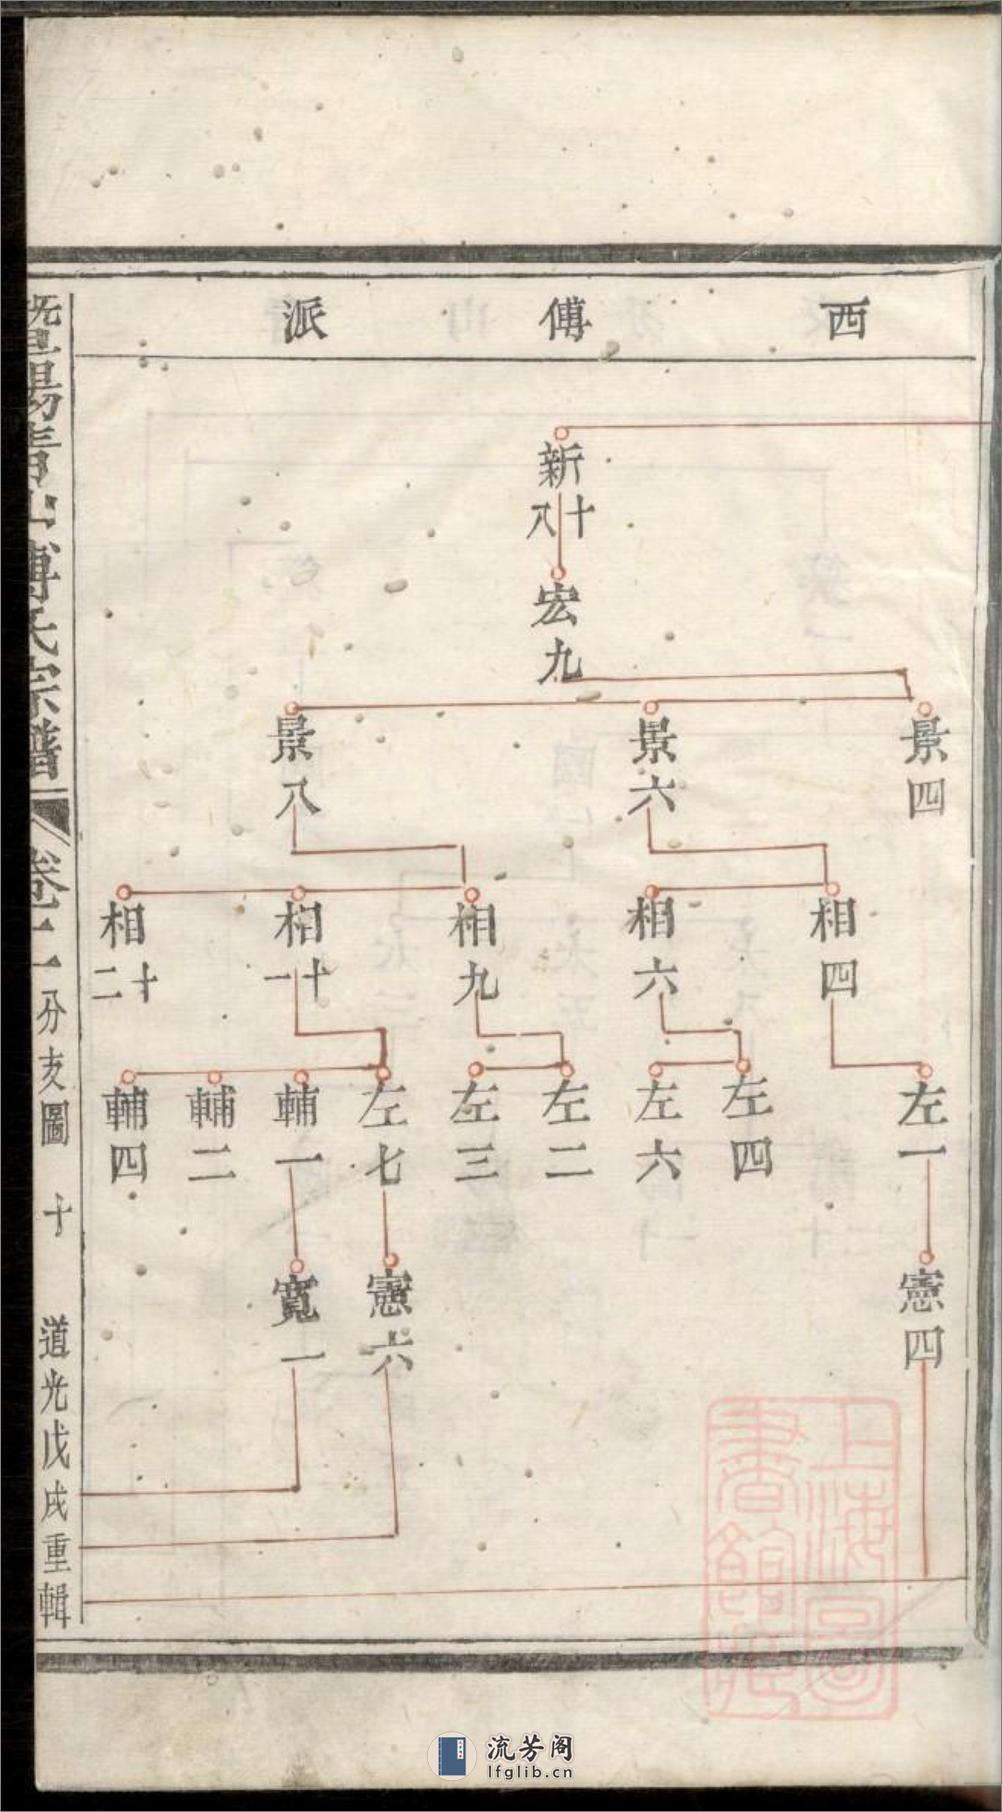 西傅派
新十八
宏九
景四
景六
景八
相四
相六
相九
相十一
相十二
左一
左四
左六
左二
左三
左七
輔一
輔二
輔四
憲四
憲六
寬一
暨陽青山傅氏宗譜
卷二 分支圖 十 道光戊戌重輯
上海圖書館藏
流芳阁
lfglib.cn